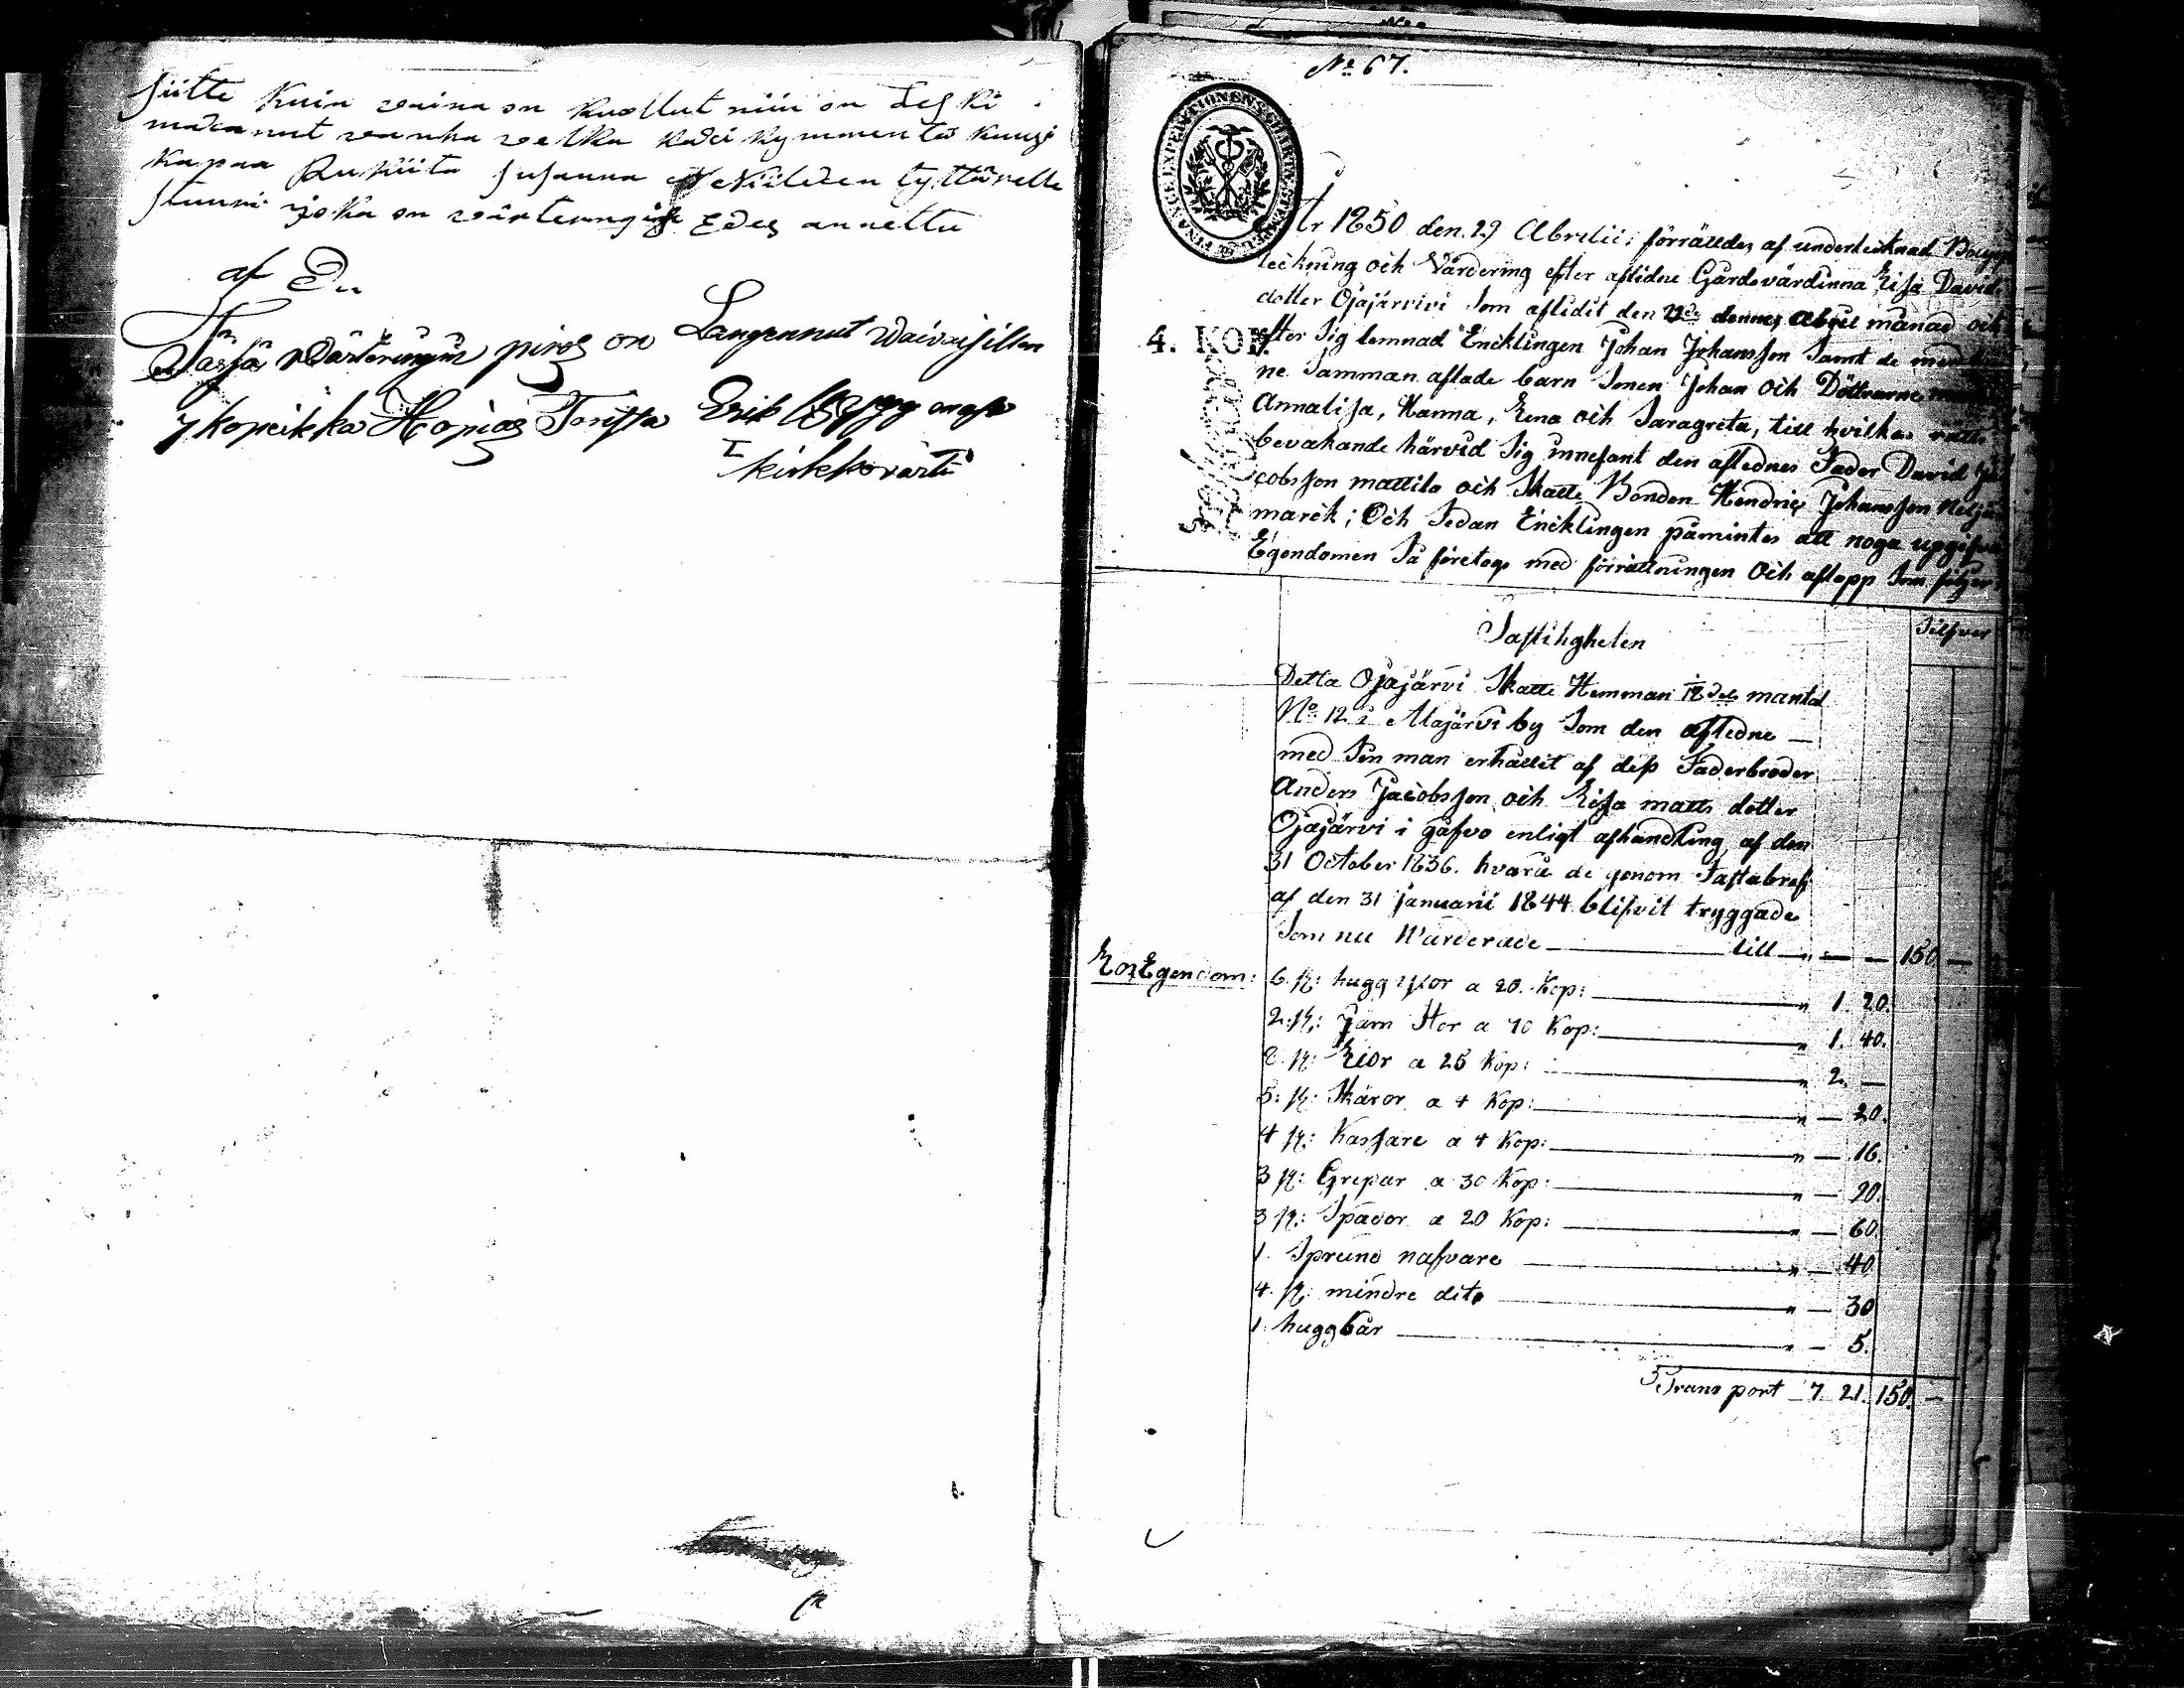 siitte kuin waina on kuollut niin on Leski
maxanut wanha welka kaxi kymmentä kuusi
kapaa Rukiita Susanna Niilexen tyttärelle
Stuuri joka on wärteeringist Edes annettu
af Du
Tasjä Wärteeringin piros on Langennut Waivaisillen
7 kopeikka Hopias Tonissa Erik
kirkkovärti
No 67.
FINANCE EXPEDITIONENS CHARTÆ STEMPEL
År 1850 den 29 Abrelii förrättdes af undertecknad Bouyp
teckning och Värdering efter aflidne Gårdsvärdinna Lisa Davids
dotter Ojajärvi Som aflidit den 22de dennes Abril månad och
4. KOP.
efter Sig lemnad Encklingen Johan Johansson Samt de med hen
ne Samman aflade barn Sonen Johan och Döttrarne
Annalisa, Hanna, Lena och Saragreta, till hvilkas rätts
bevakande härvid Sig innefant den aflednes Fader David Ja
cobsson mattila och Skatte Bonden Hendric Johansson Neljän
marck; Och Sedan Encklingen påmintes att noga uppgifva
Egendomen Så företogs med förrättningen Och aflopp Som följer,
Silfver
Fastihgheten
Detta Ojajärvi Skatte Hemman 1/12 dels mantal
No 12 i Alajärvi by Som den afledne —
med Sin man erhållit af dess Faderbroder
Anders Jacobsson och Lisa matts dotter
Ojajärvi i gåfvo enligt afhandling af den
31 October 1836. hvara de genom Fastabref
af den 31 Januarii 1844 blifvit tryggade
Som nu Warderade — till — „ — — 150 —
Lös Egendom: 6. st: hugg yxor a 20. Kop: — „ 1. 20.
2. st: Jarn Stor a 70 Kop: — „ 1. 40.
8. st: Lior a 25 Kop: — „ 2. —
5: st: Skäror a 4 Kop: — „ — 20.
4 st: Kassare a 4 Kop: — „ — 16.
3 st: Grepar a 30 Kop: — „ — 90.
3 st: Spador a 20 Kop: — „ — 60.
1. Sprund nafvare — „ — 40
4. st: mindre dito — „ — 30
1. huggbår — „ — 5.
Transport — 7. 21. 150. —